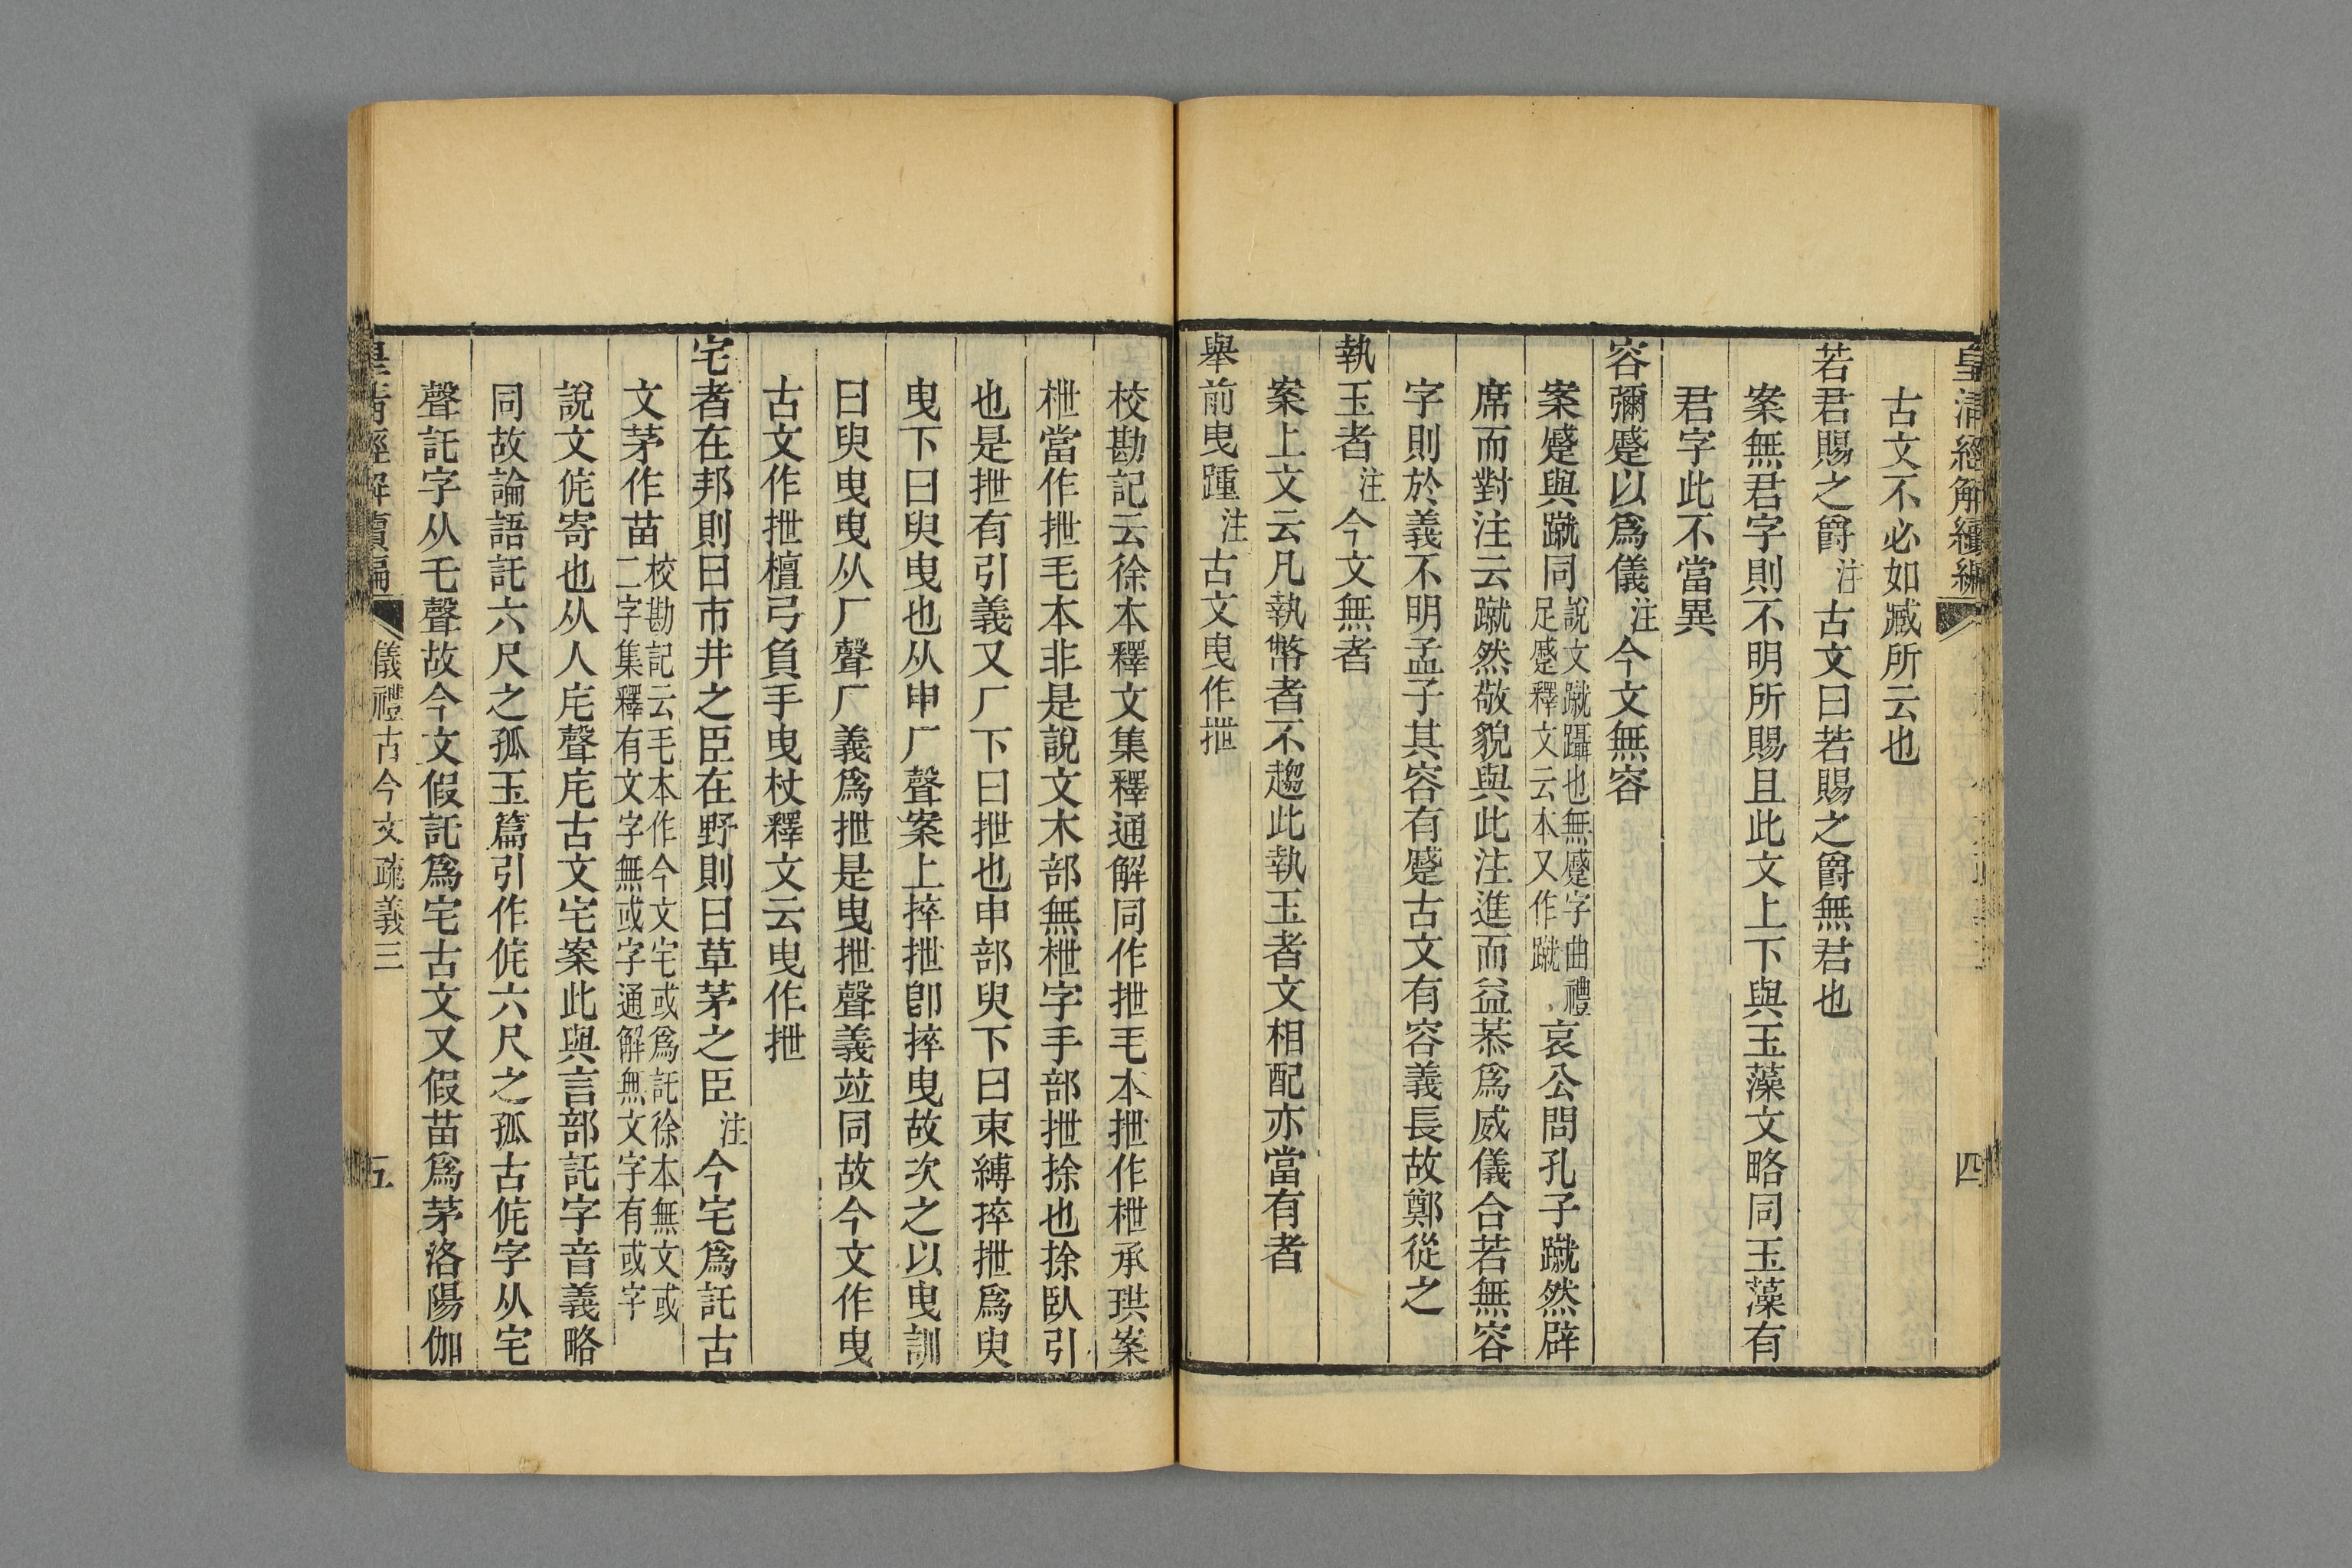 皇清經解續編
四
古文不必如臧所云也
若君賜之爵注古文曰若賜之爵無君也
案無君字則不明所賜且此文上下與玉藻文略同玉藻有
君字此不當異
容彌蹙以爲儀注今文無容
案蹙與蹴同說文蹴躡也無蹙字曲禮足蹙釋文云本又作蹴哀公問孔子蹴然辟
席而對注云蹴然敬貌與此注進而益恭爲威儀合若無容
字則於義不明孟子其容有蹙古文有容義長故鄭從之
執玉者注今文無者
案上文云凡執幣者不趨此執玉者文相配亦當有者
舉前曳踵注古文曳作抴
校勘記云徐本釋文集釋通解同作抴毛本抴作枻承珙案
枻當作抴毛本非是說文木部無枻字手部抴捈也捈臥引
也是抴有引義又厂下曰抴也申部臾下曰束縛捽抴爲臾
曳下曰臾曳也从申厂聲案上捽抴卽捽曳故次之以曳訓
曰臾曳曳从厂聲厂義爲抴是曳抴聲義竝同故今文作曳
古文作抴檀弓負手曳杖釋文云曳作抴
宅者在邦則曰市井之臣在野則曰草茅之臣注今宅爲託古
文茅作苗校勘記云毛本作今文宅或爲託徐本無文或二字集釋有文字無或字通解無文字有或字
說文侂寄也从人庑聲庑古文宅案此與言部託字音義略
同故論語託六尺之孤玉篇引作侂六尺之孤古侂字从宅
聲託字从乇聲故今文假託爲宅古文又假苗爲茅洛陽伽
皇清經解續編
儀禮古今文疏義三
五